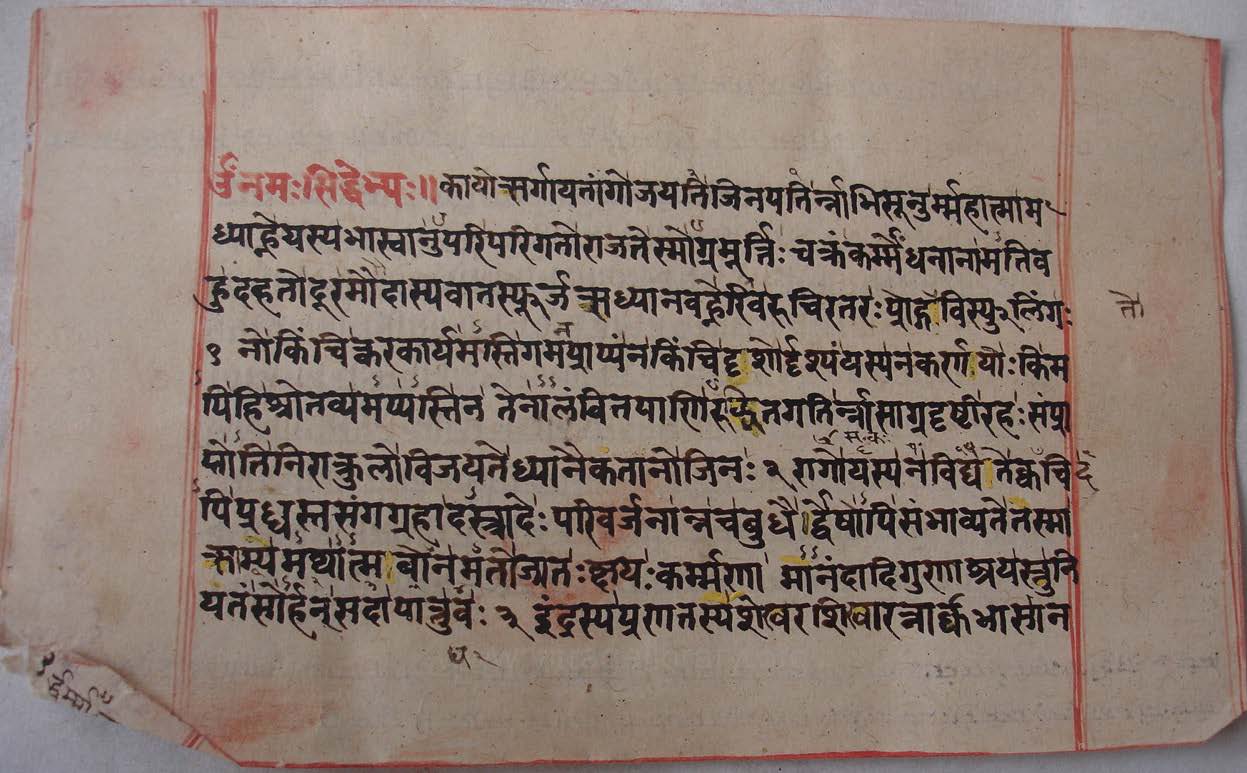 उँनमःसिद्धेभ्यः॥ कायोत्सर्गायतांगोजयतिजिनपतिर्न्नाभिसूनुर्म्महात्माम
ध्याह्नेयस्यभास्वानुपरिपरिगतोराजतेस्मोग्रमूर्त्तिः चक्रंकर्म्मेंधनानामतिब
हुदहतोदूरमौदास्यवातस्फूर्जत्सध्यानवह्नेरिवरुचिरतरः प्रोद्गविस्फुलिंगः
तो
१ नोकिंचित्करकार्यमस्तिगमनप्राप्यंनकिंचिद्दृशोर्दृश्यंयस्यनकर्णयोः किम
पिहिश्रोतव्यमप्यस्तिन तेनालंवितपाणिरुज्झितगतिर्न्नासाग्रदृष्टीरहः संप्रा
प्तोतिनिराकुलोविजयतेध्यानैकतानोजिनः २ रागोयस्यनविद्यतेक्वचिद
पिप्रध्वस्तसंगग्रहादस्त्रादेः परिवर्जनान्नचबुधैर्द्वेषोपिसंभाव्यतेतस्मा
त्साम्यमथात्मबोधनमतोजातः क्षयः कर्म्मणामानंदादिगुणाश्रयस्तुनि
यतंसोर्हन्सदापातुवः ३ इंद्रस्यप्रणतस्यशेखरशिखारत्नार्क्कभासान